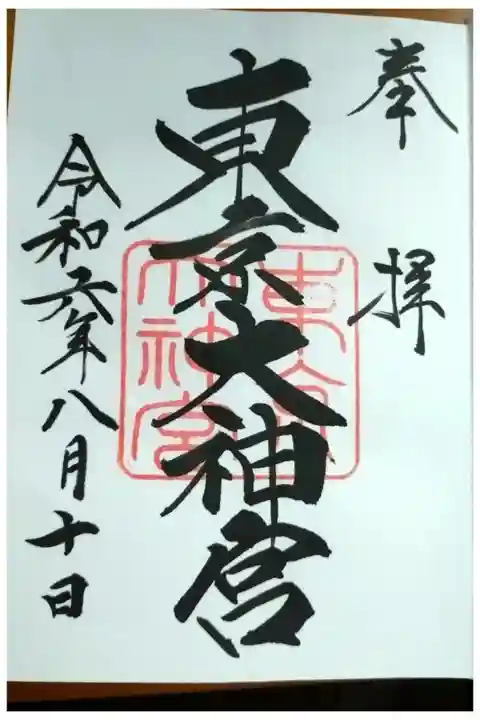 奉拝
東京大神宮
東京大神宮
令和六年八月十日